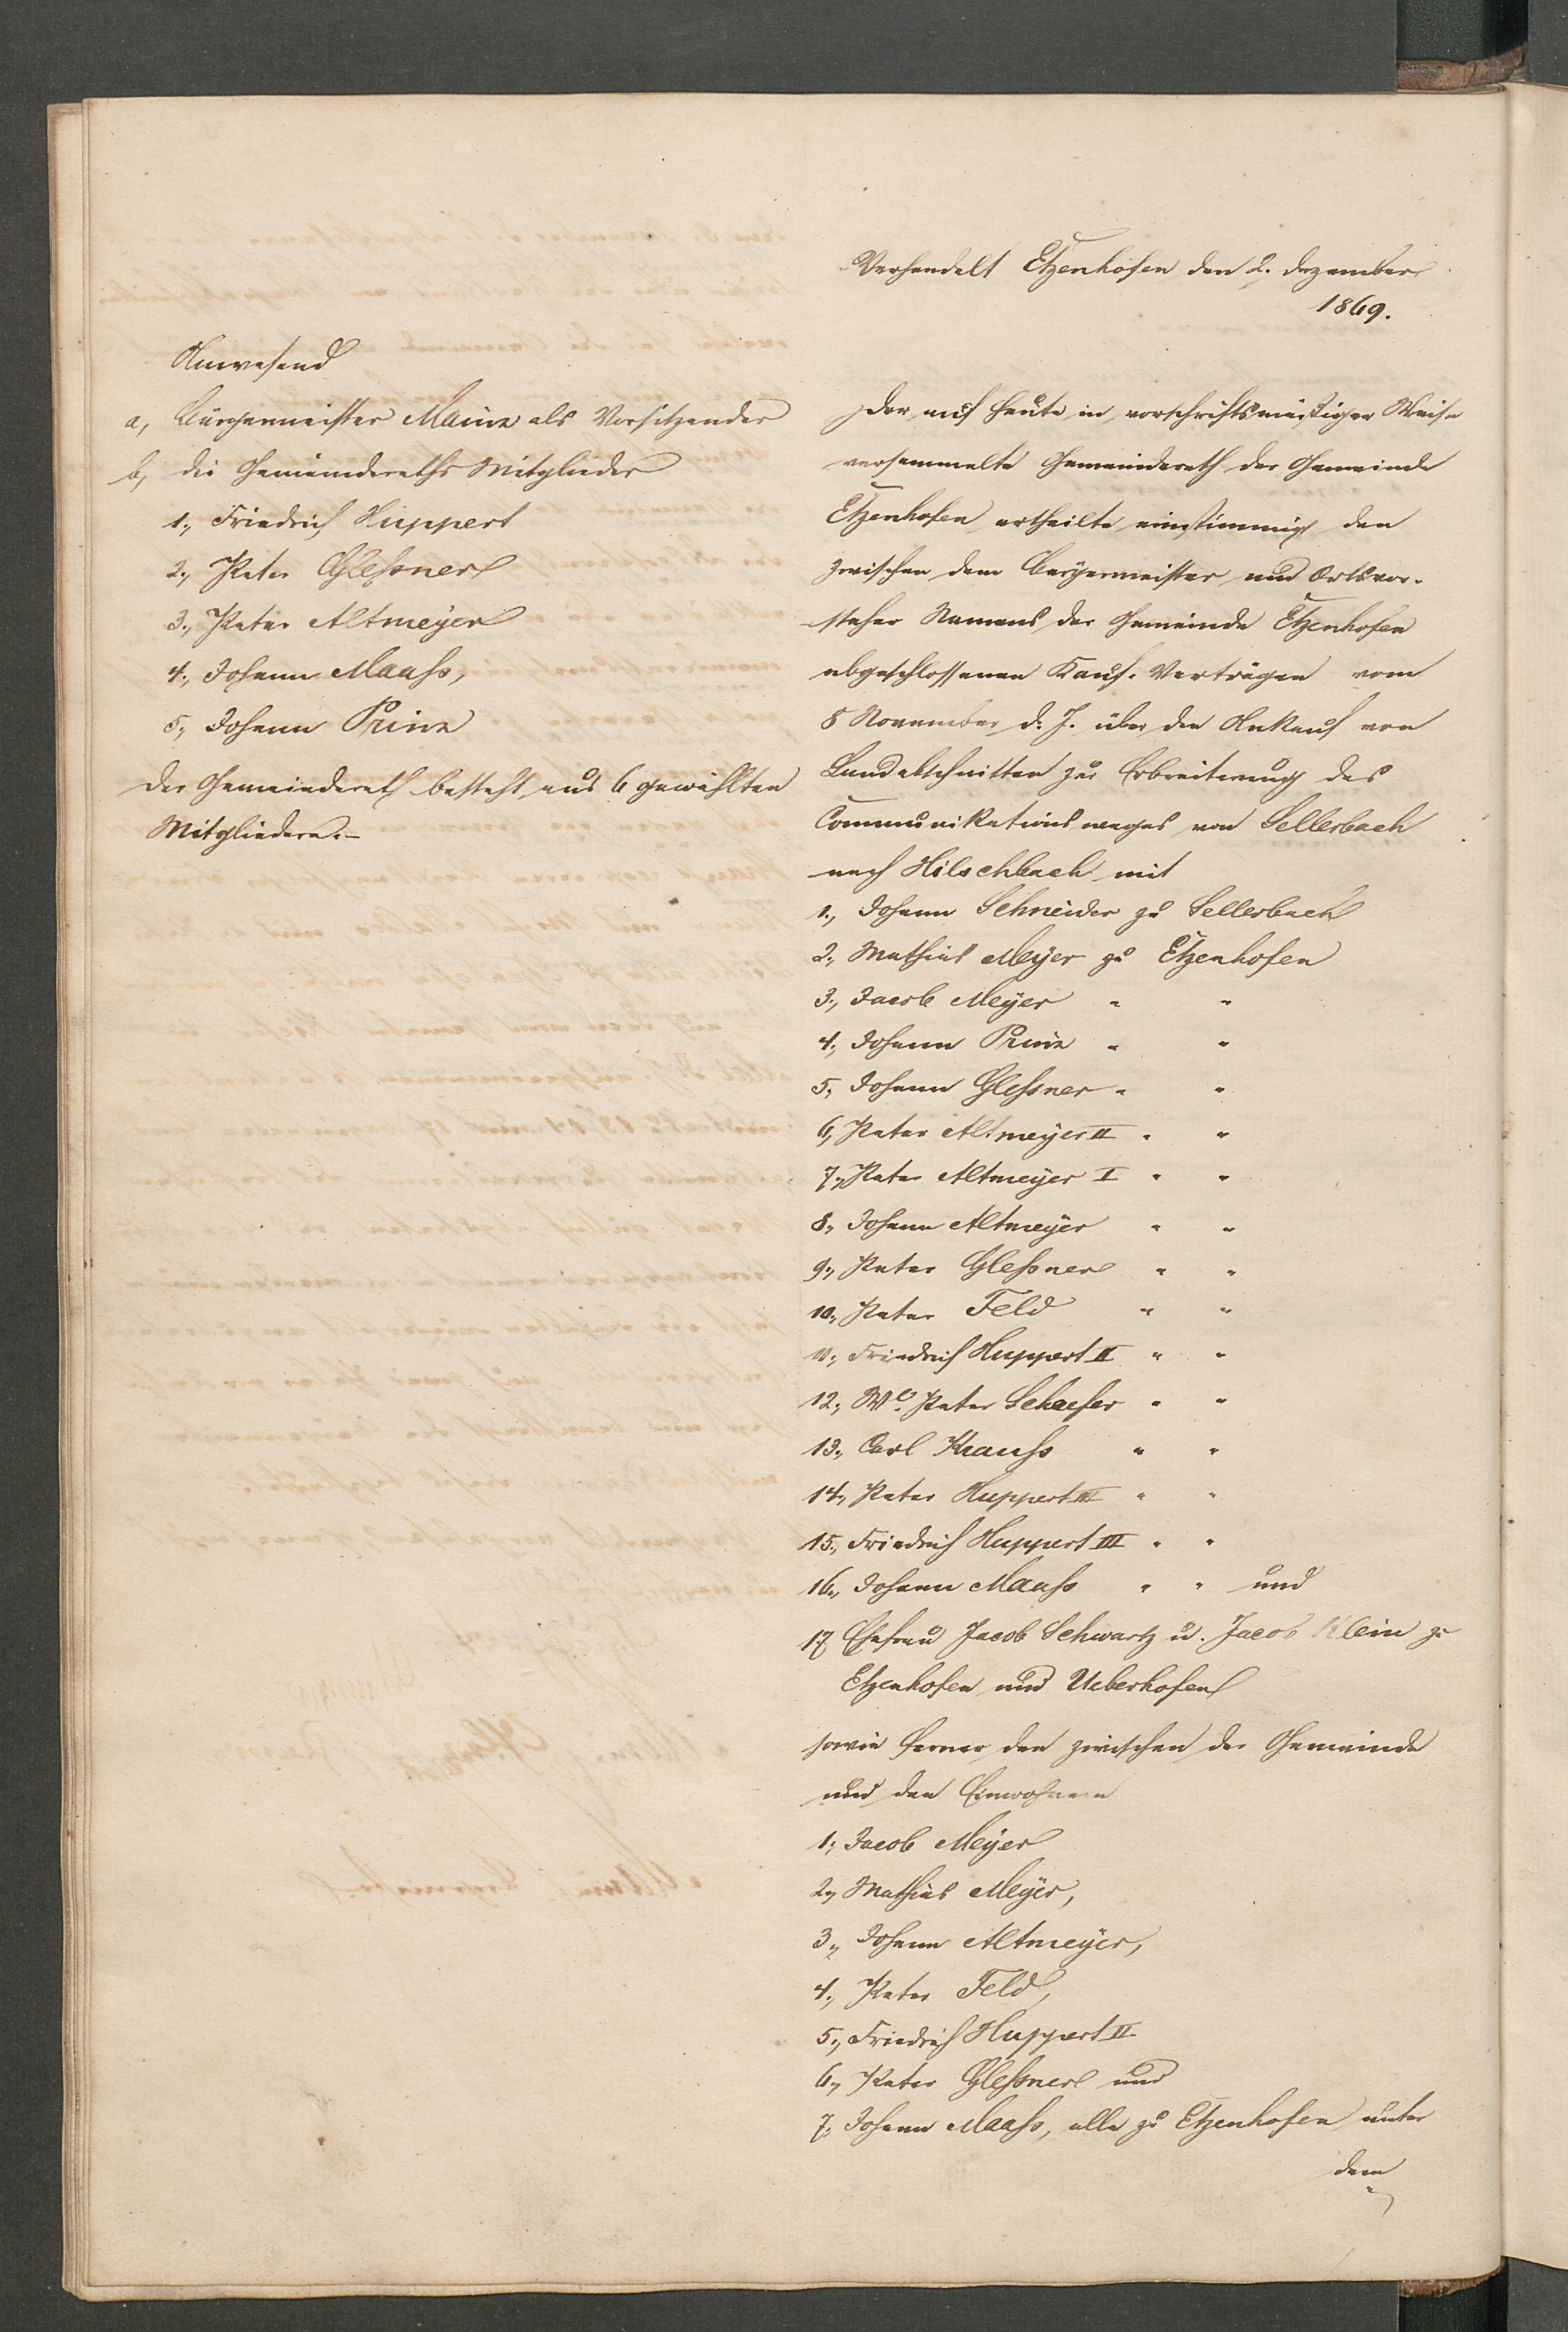 Verhandelt Etzenhofen den 2. Dezember
1869.
Anwesend
a, Bürgermeister Mainz als Vorsitzender
b, die Gemeinderaths Mitglieder
1., Friedrich Huppert
2., Peter Gleßner
3., Peter Altmeyer
4., Johann Maaß,
5., Johann Prinz
Der Gemeinderath besteht aus 6 gewählten
Mitgliedern.-
Der auf heute in vorschriftsmäßiger Weise
versammelte Gemeinderath der Gemeinde
Etzenhofen ertheilte einstimmig den
zwischen dem Bürgermeister und Ortsvor-
steher Namens der Gemeinde Etzenhofen
abgeschlossenen Kauf-Verträgen vom
8 November d. J. über den Ankauf von
Landabschnitten zur Erbreiterung des
Communikationsweges von Sellerbach
nach Hilschbach mit
1., Johann Schneider zu Sellerbach
2., Mathias Meyer zu Etzenhofen
3., Jacob Meyer " "
4., Johann Prinz " "
5., Johann Gleßner " "
6., Peter Altmeyer II " "
7., Peter Altmeyer I " "
8., Johann Altmeyer " "
9., Peter Gleßner " "
10., Peter Feld " "
11., Friedrich Huppert II " "
12., We. Peter Schaefer " "
13., Carl Krauß " "
14., Peter Huppert III " "
15., Friedrich Huppert III " "
16., Johann Maaß " " und
17 Ehefrau Jacob Schwartz u. Jacob Klein zu
Etzenhofen und Ueberhofen
sowie ferner den zwischen der Gemeinde
und den Einwohnern
1., Jacob Meyer
2., Mathias Meyer,
3., Johann Altmeyer,
4., Peter Feld,
5., Friedrich Huppert II
6., Peter Gleßner und
7., Johann Maaß, alle zu Etzenhofen unter
dem